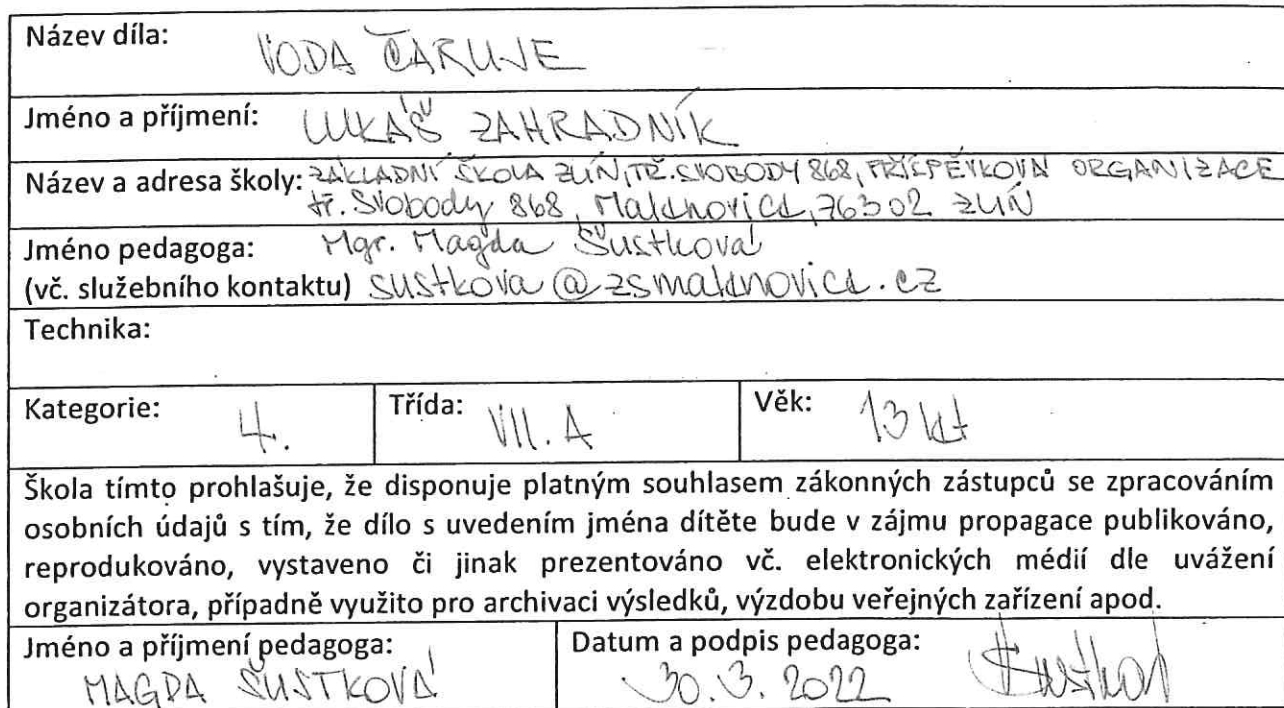 Název díla: VODA ČARUJE
Jméno a příjmení: LUKÁŠ ZAHRADNÍK
Název a adresa školy: ZÁKLADNÍ ŠKOLA ZLÍN, TŘ. SVOBODY 868, PŘÍSPĚVKOVÁ ORGANIZACE
tř. Svobody 868, Malenovice, 76302 ZLÍN
Jméno pedagoga: Mgr. Magda Šustková
(vč. služebního kontaktu) sustkova@zsmalenovice.cz
Technika:
Kategorie: 4. Třída: VII. A Věk: 13 let
Škola tímto prohlašuje, že disponuje platným souhlasem zákonných zástupců se zpracováním
osobních údajů s tím, že dílo s uvedením jména dítěte bude v zájmu propagace publikováno,
reprodukováno, vystaveno či jinak prezentováno vč. elektronických médií dle uvážení
organizátora, případně využito pro archivaci výsledků, výzdobu veřejných zařízení apod.
Jméno a příjmení pedagoga: Datum a podpis pedagoga:
MAGDA ŠUSTKOVÁ 30. 3. 2022 Šustková